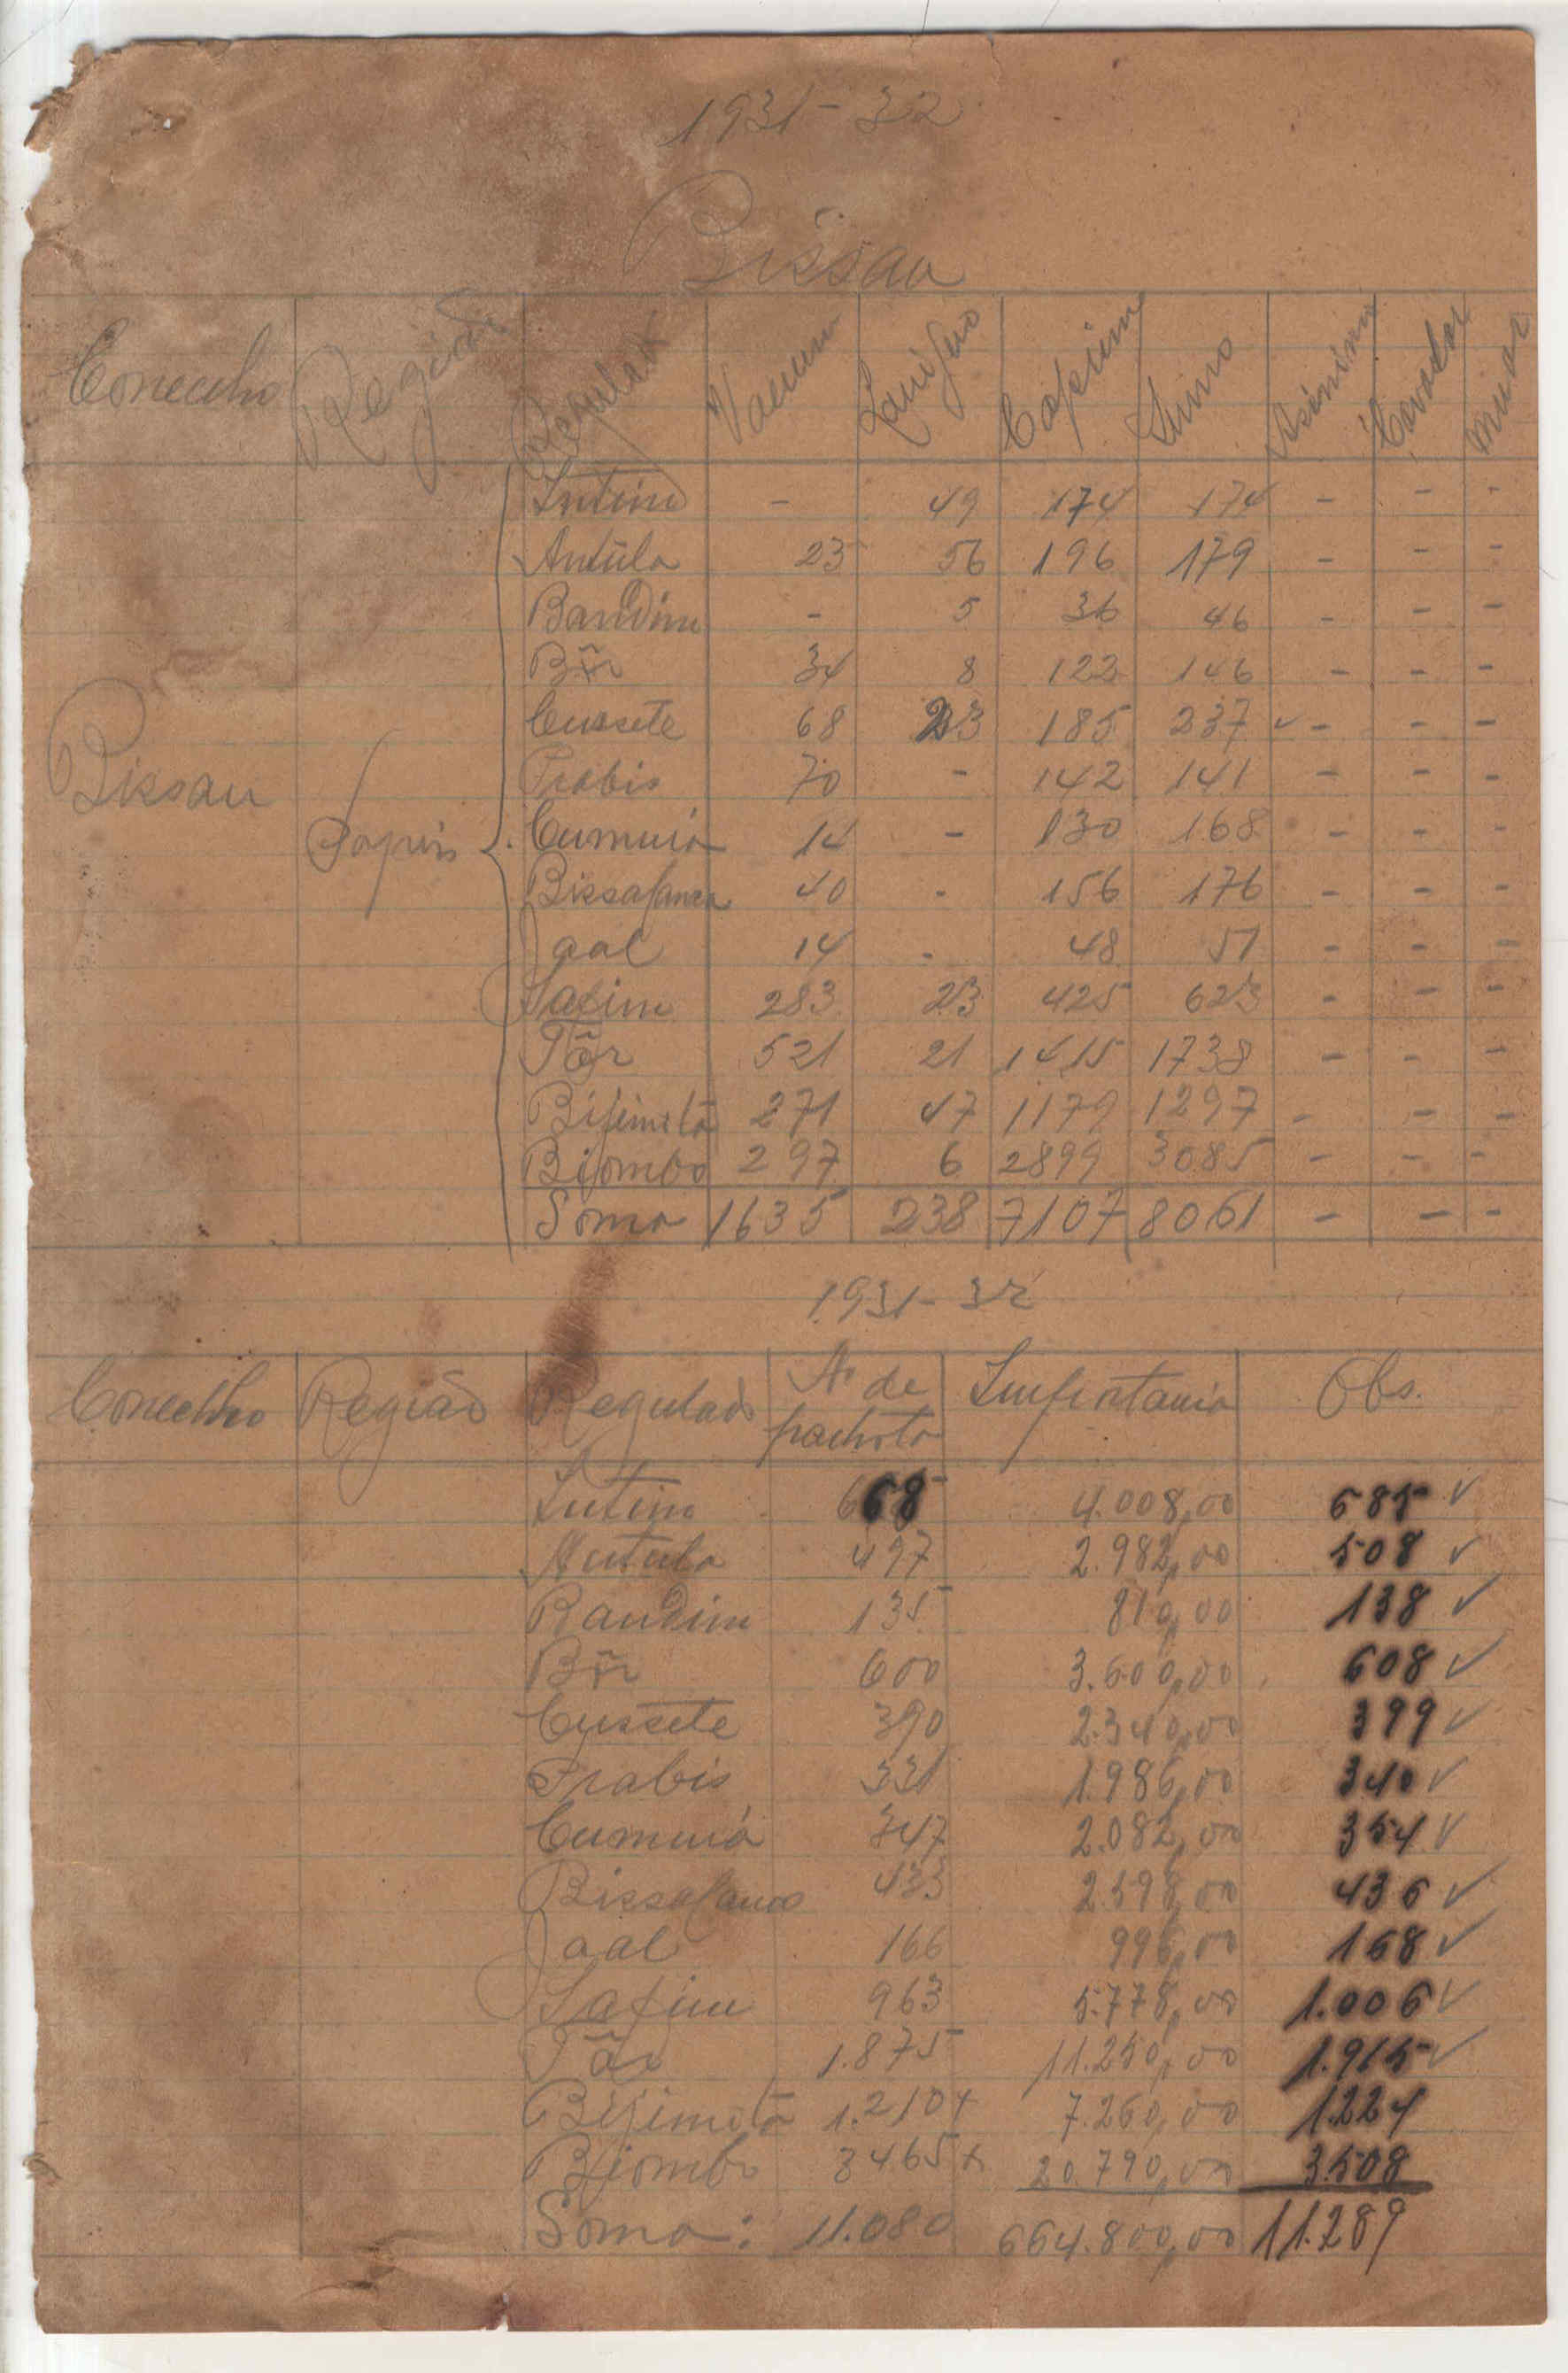 1931-32
Bissau
Concelho Região Regulado Vacum Lanigero Caprim Suino Asinino Cavalar Muar
Intim - 49 174 174 - - -
Antúla 23 56 196 179 - - -
Bandim - 5 36 46 - - -
Bôr 34 8 122 146 - - -
Cussete 68 23 185 237 ✓ - - -
Prabis 70 - 142 141 - - -
Bissau Papeis Cumurá 14 - 130 168 - - -
Bissalanca 40 - 156 176 - - -
Jaal 14 - 48 51 - - -
Safim 283 23 425 623 - - -
Tôr 521 21 1415 1738 - - -
Bijimitá 271 47 1179 1297 - - -
Bijombo 297 6 2899 3085 - - -
Soma 1635 238 7107 8061 - - -
1931-32
Concelho Região Regulado Nº de Obs.
Intim 668 4.008,00 685 ✓
Antula 497 2.982,00 508 ✓
Bandim 135 810,00 138 ✓
Bôr 600 3.600,00 608 ✓
Cussete 390 2.340,00 399 ✓
Prabis 331 1.986,00 340 ✓
Cumurá 347 2.082,00 354 ✓
Bissalanca 433 2.598,00 436 ✓
Jaal 166 996,00 168 ✓
Safim 963 5.778,00 1.006 ✓
Tôr 1.875 11.250,00 1.915 ✓
Bijimitá 1.210 + 7.260,00 1.224
Bijombo 3465 x 20.790,00 3.508
Soma: 11.080 664.800,00 11.289